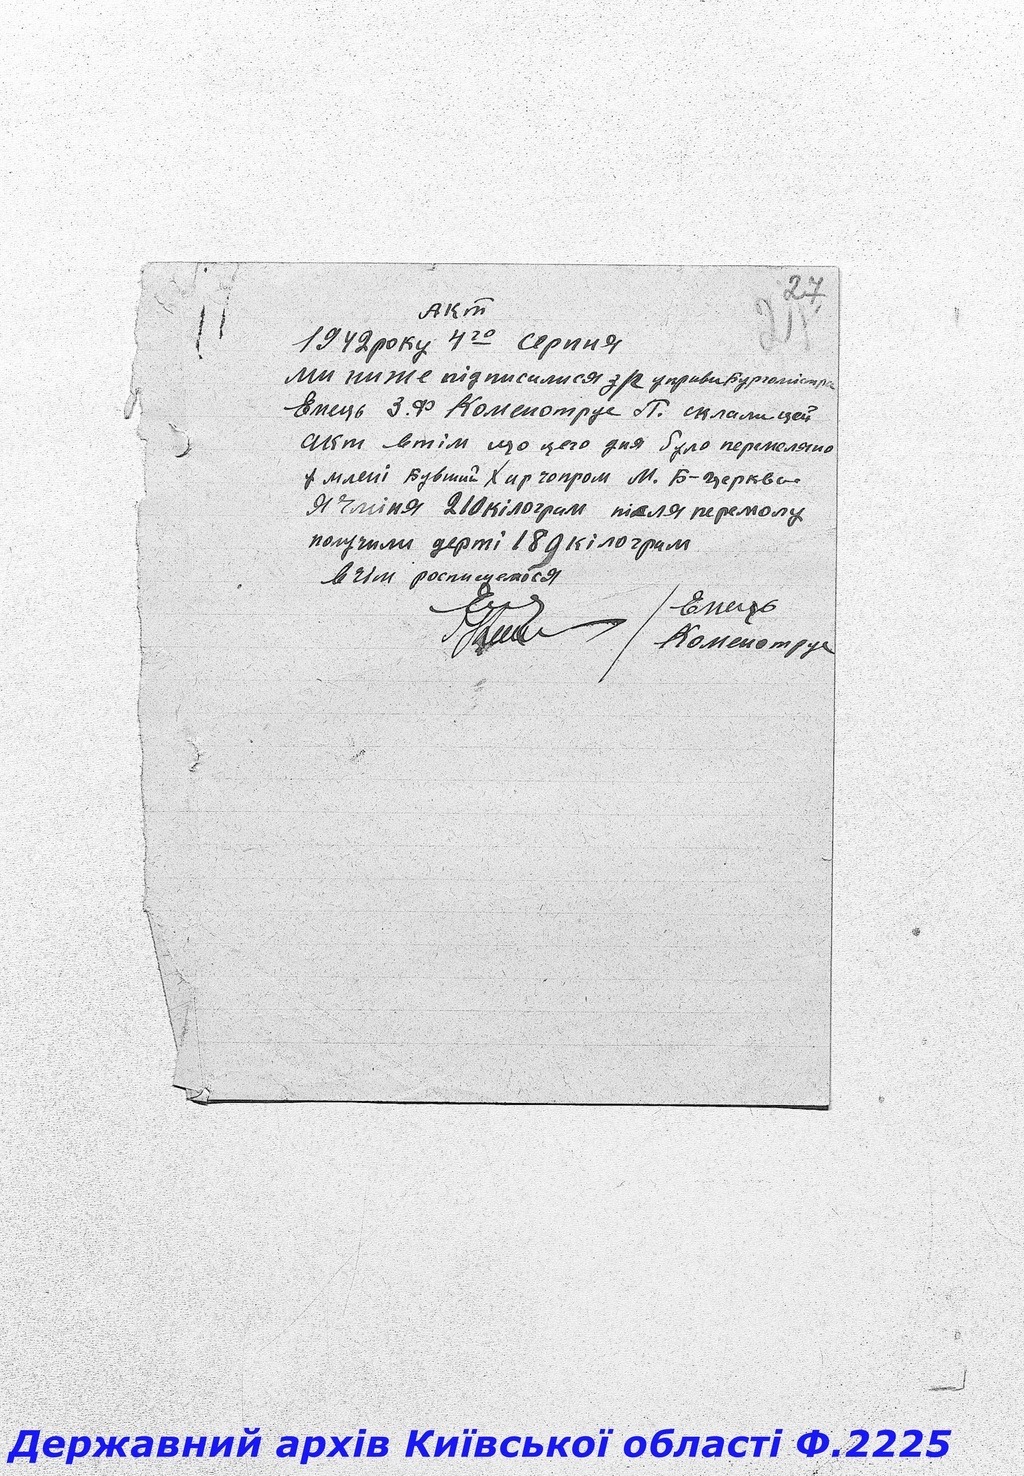 27
Акт
1942 року 4го Серпня
Ми ниже підписалися зр управи Бургомістра
Енець З.Ф Коменотрус П. склали цей
акт втім що цего дня було перемеляно
у млені Бувший Харчопром М. Б-церква
Ячміня 210 кілограм після перемолу
получили дерті 189 кілограм
вчім росписуемося
Енець
Коменотрус
Державний архів Київської області Ф.2225